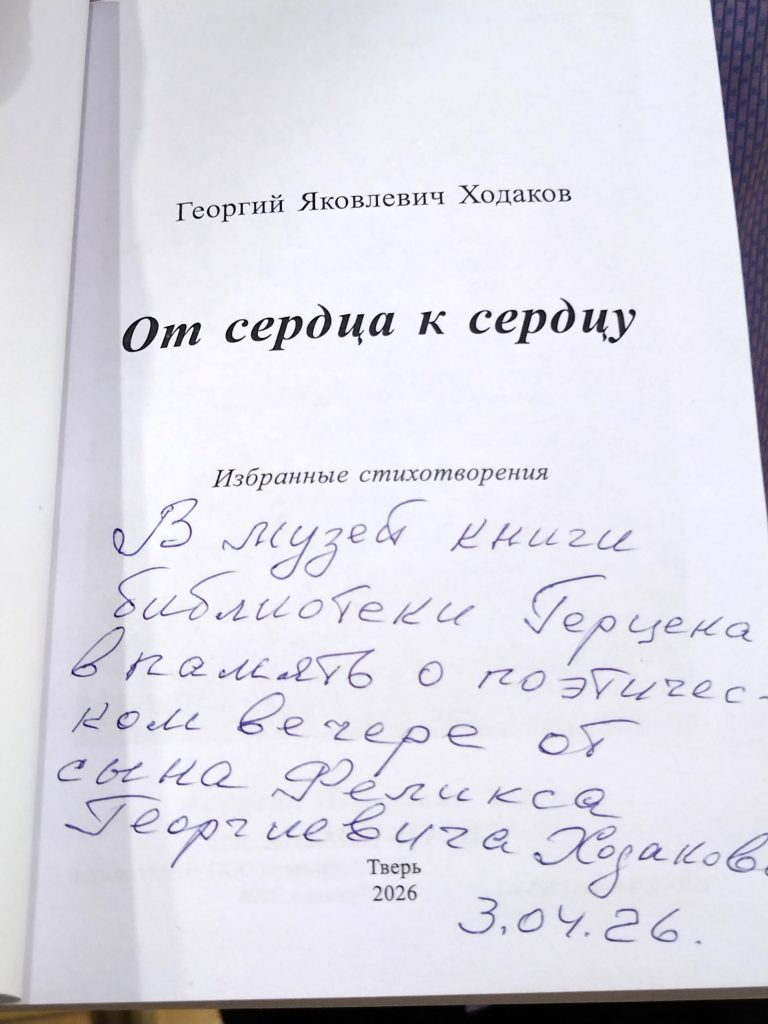 Георгий Яковлевич Ходаков
От сердца к сердцу
Избранные стихотворения
В музей книги
библиотеки Герцена
в память о поэтичес-
ком вечере от
сына Феликса
Георгиевича Ходакова
Тверь
2026
3.04.26.